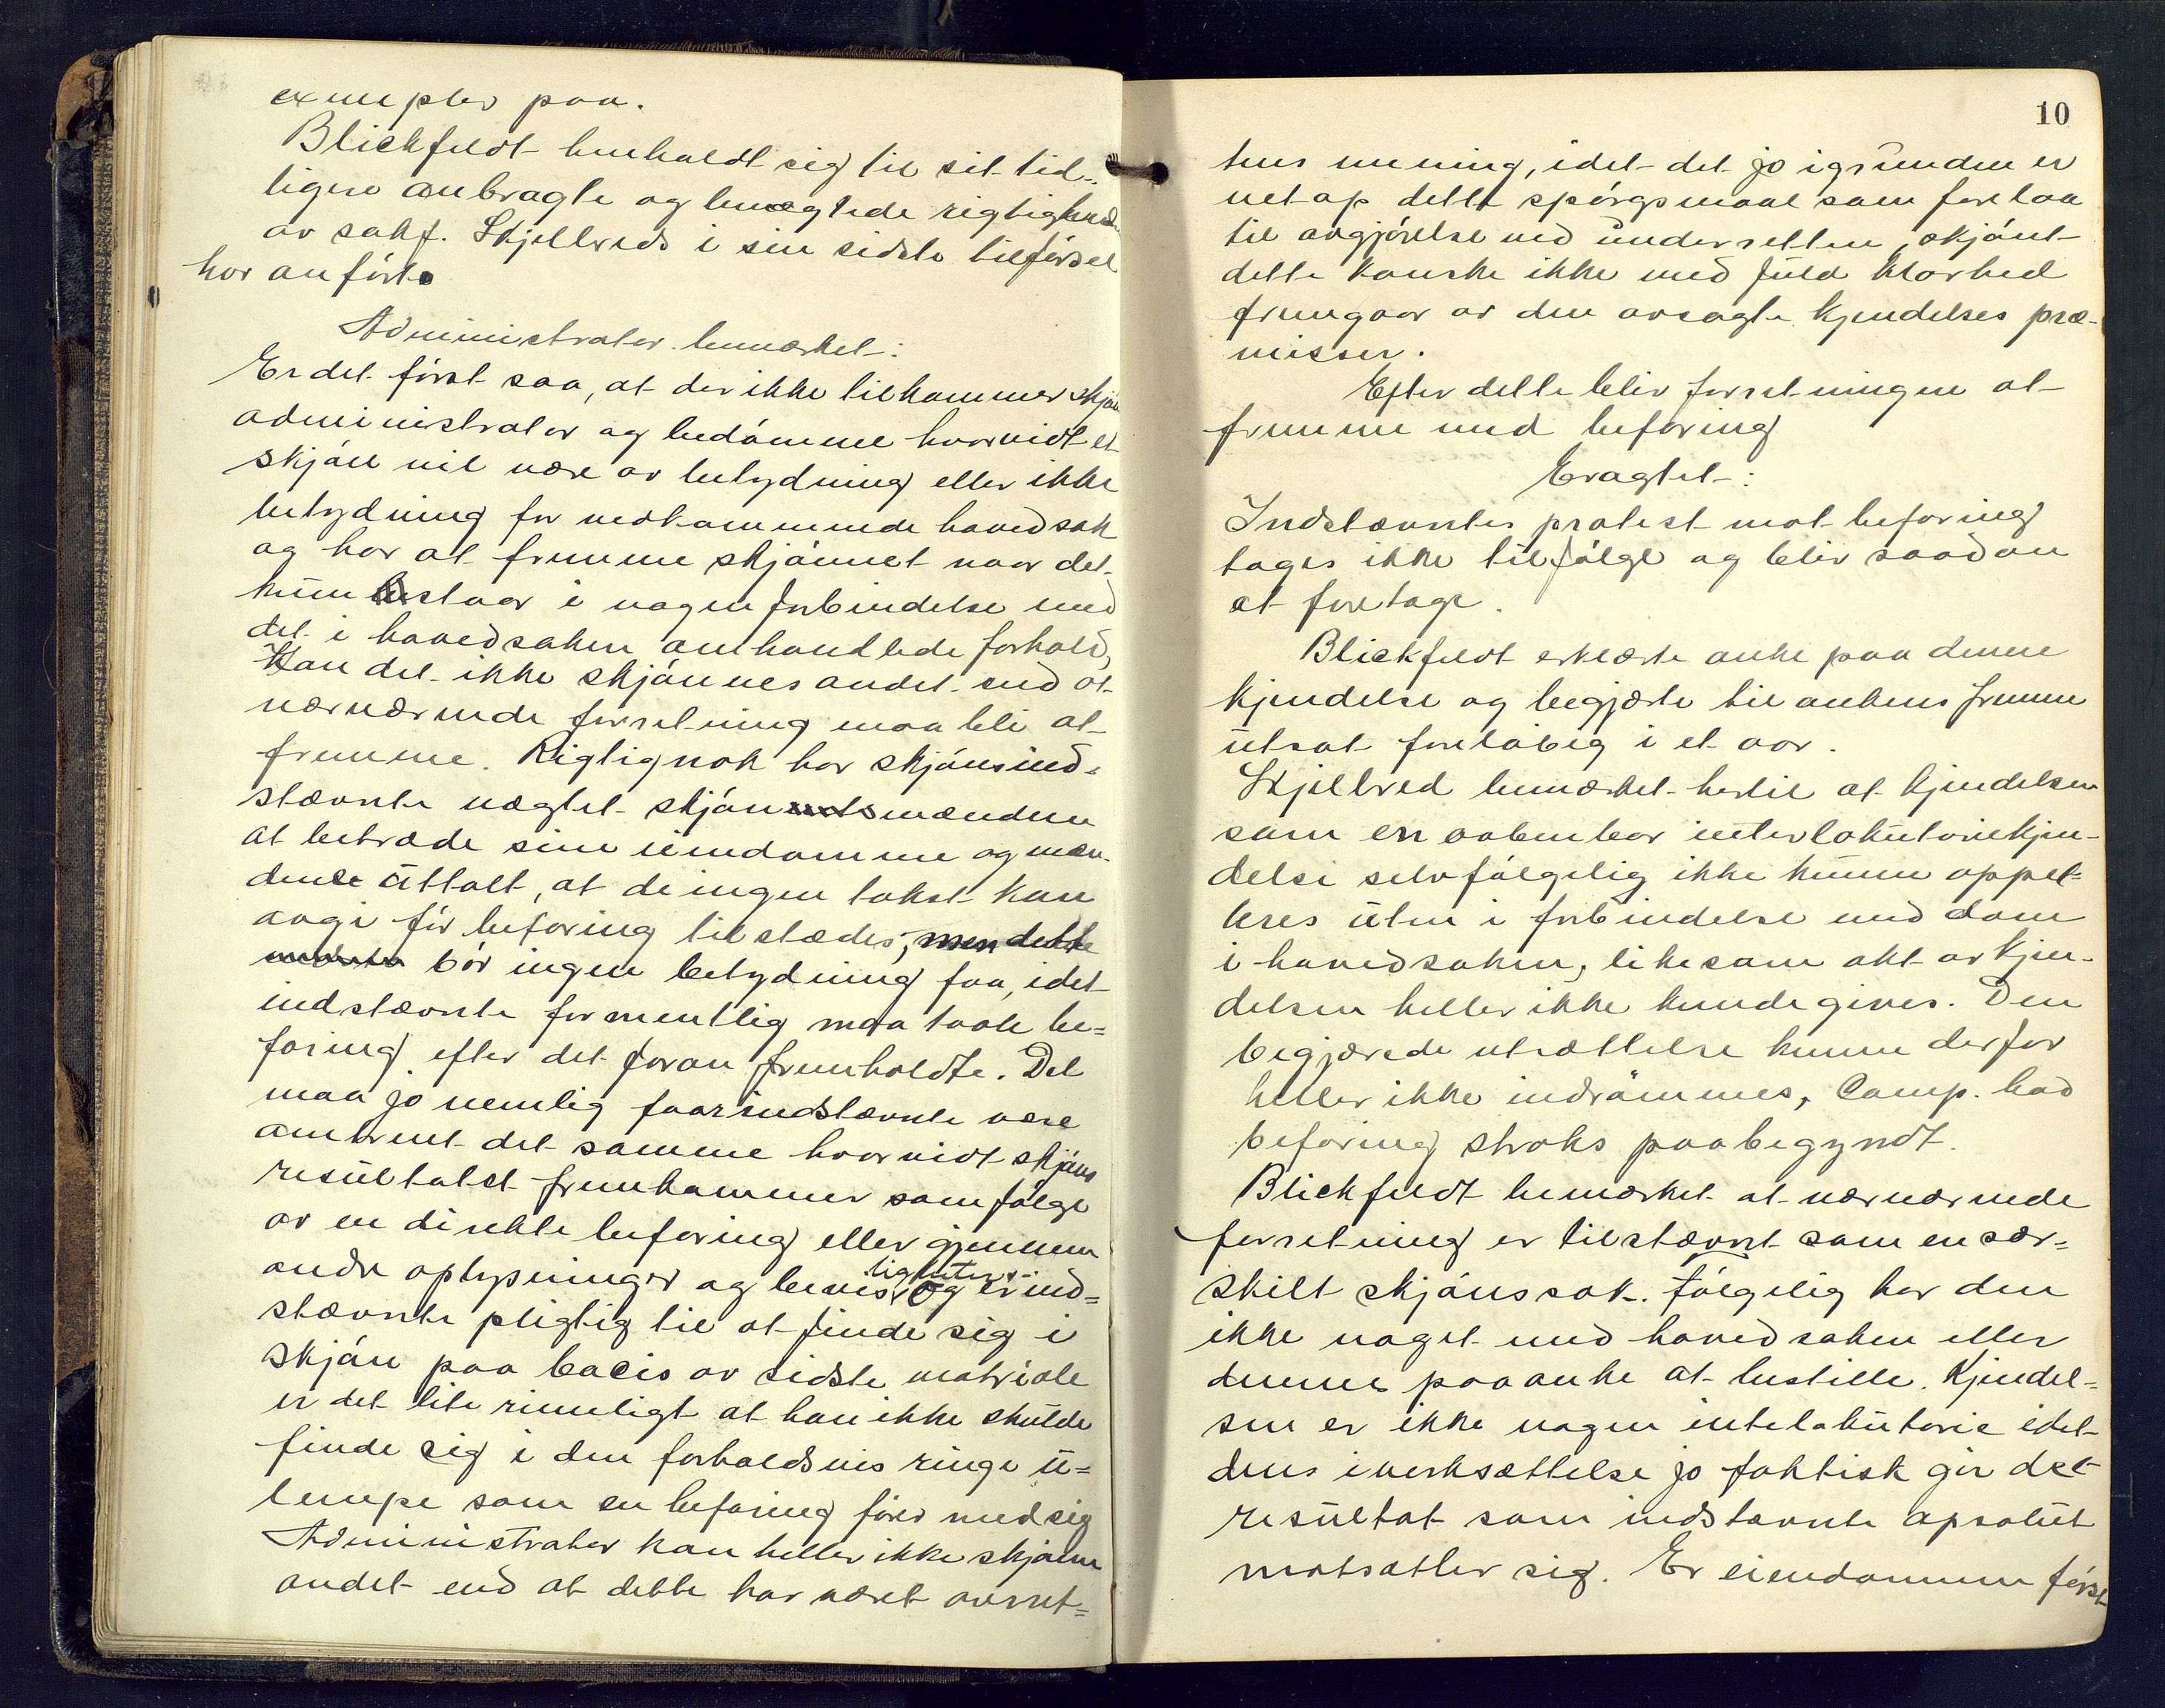 exempler paa.
Blickfeldt henholdt sig til sit tid-
ligere anbragte og benegtede rigtigheden
av sakf. Skjellreds i sin sidste tilførsel
har anført.
Administrator bemærket:
Er det først saa, at der ikke tilkommer skjøns
administrator og bedømme hvorvidt et
skjøn vil være av betydning eller ikke
betydning for vedkommende hovedsak
og har at fremme skjønnet naar det
kun bestaar i nogen forbindelse med
det i hovedsaken anhandlede forhold,
kan det ikke skjønnes andet end at
nærværende forretning maa bli at
fremme. Rigtignok har skjønsind-
stævnte nægtet skjønsmændene
at betræde sine eiendomme og mæn-
dene uttalt, at de ingen takst kan
avgi før befaring tilstædes, men dette
bør ingen betydning faa, idet
indstævnte formentlig maa taale be-
faring efter det foran fremholdte. Det
maa jo nemlig for indstævnte være
omtrent det samme hvorvidt skjøns
resultatet fremkommer som følge
av en direkte befaring eller gjennem
andre oplysninger og bevisligheter og er ind-
stævnte pligtig til at finde sig i
skjøn paa basis av sidste matriale
er det lite rimeligt at han ikke skulde
finde sig i den forholdsvis ringe u-
lempe som en befaring fører med sig
Administrator kan heller ikke skjønne
andet end at dette har været overret-
10
tens mening, idet det jo igrunden er
netop dette spørgsmaal som forelaa
til avgjørelse ved underretten, skjønt
dette kanske ikke med fuld klarhed
fremgaar av den avsagte kjendelses præ-
misser.
Efter dette blir forretningen at
fremme med befaring
Eragtet:
Indstævntes protest mot befaring
tages ikke tilfølge og blir saadan
at foretage.
Blickfeldt erklærte anke paa denne
kjendelse og begjærte til ankens fremme
utsat foreløbig i et aar.
Skjellred bemærket hertil at kjendelsen
som en aabenbar interlokutoriekjen-
delse selvfølgelig ikke kunne appel-
leres uten i forbindelse med dom
i hovedsaken, likesom akt av kjen-
delsen heller ikke kunde gives. Den
begjærede utsættelse kunne derfor
heller ikke indrømmes, Comp. bad
befaring straks paabegyndt.
Blickfeldt bemærket at nærværende
forretning er tilstævnt som en sær-
skilt skjønssak. Følgelig har den
ikke noget med hovedsaken eller
dennes paaanke at bestille. Kjendel-
sen er ikke nogen intelokutorie idet
dens iverksættelse jo faktisk gir det
resultat som indstævnte apsolut
motsætter sig. Er eiendommen først